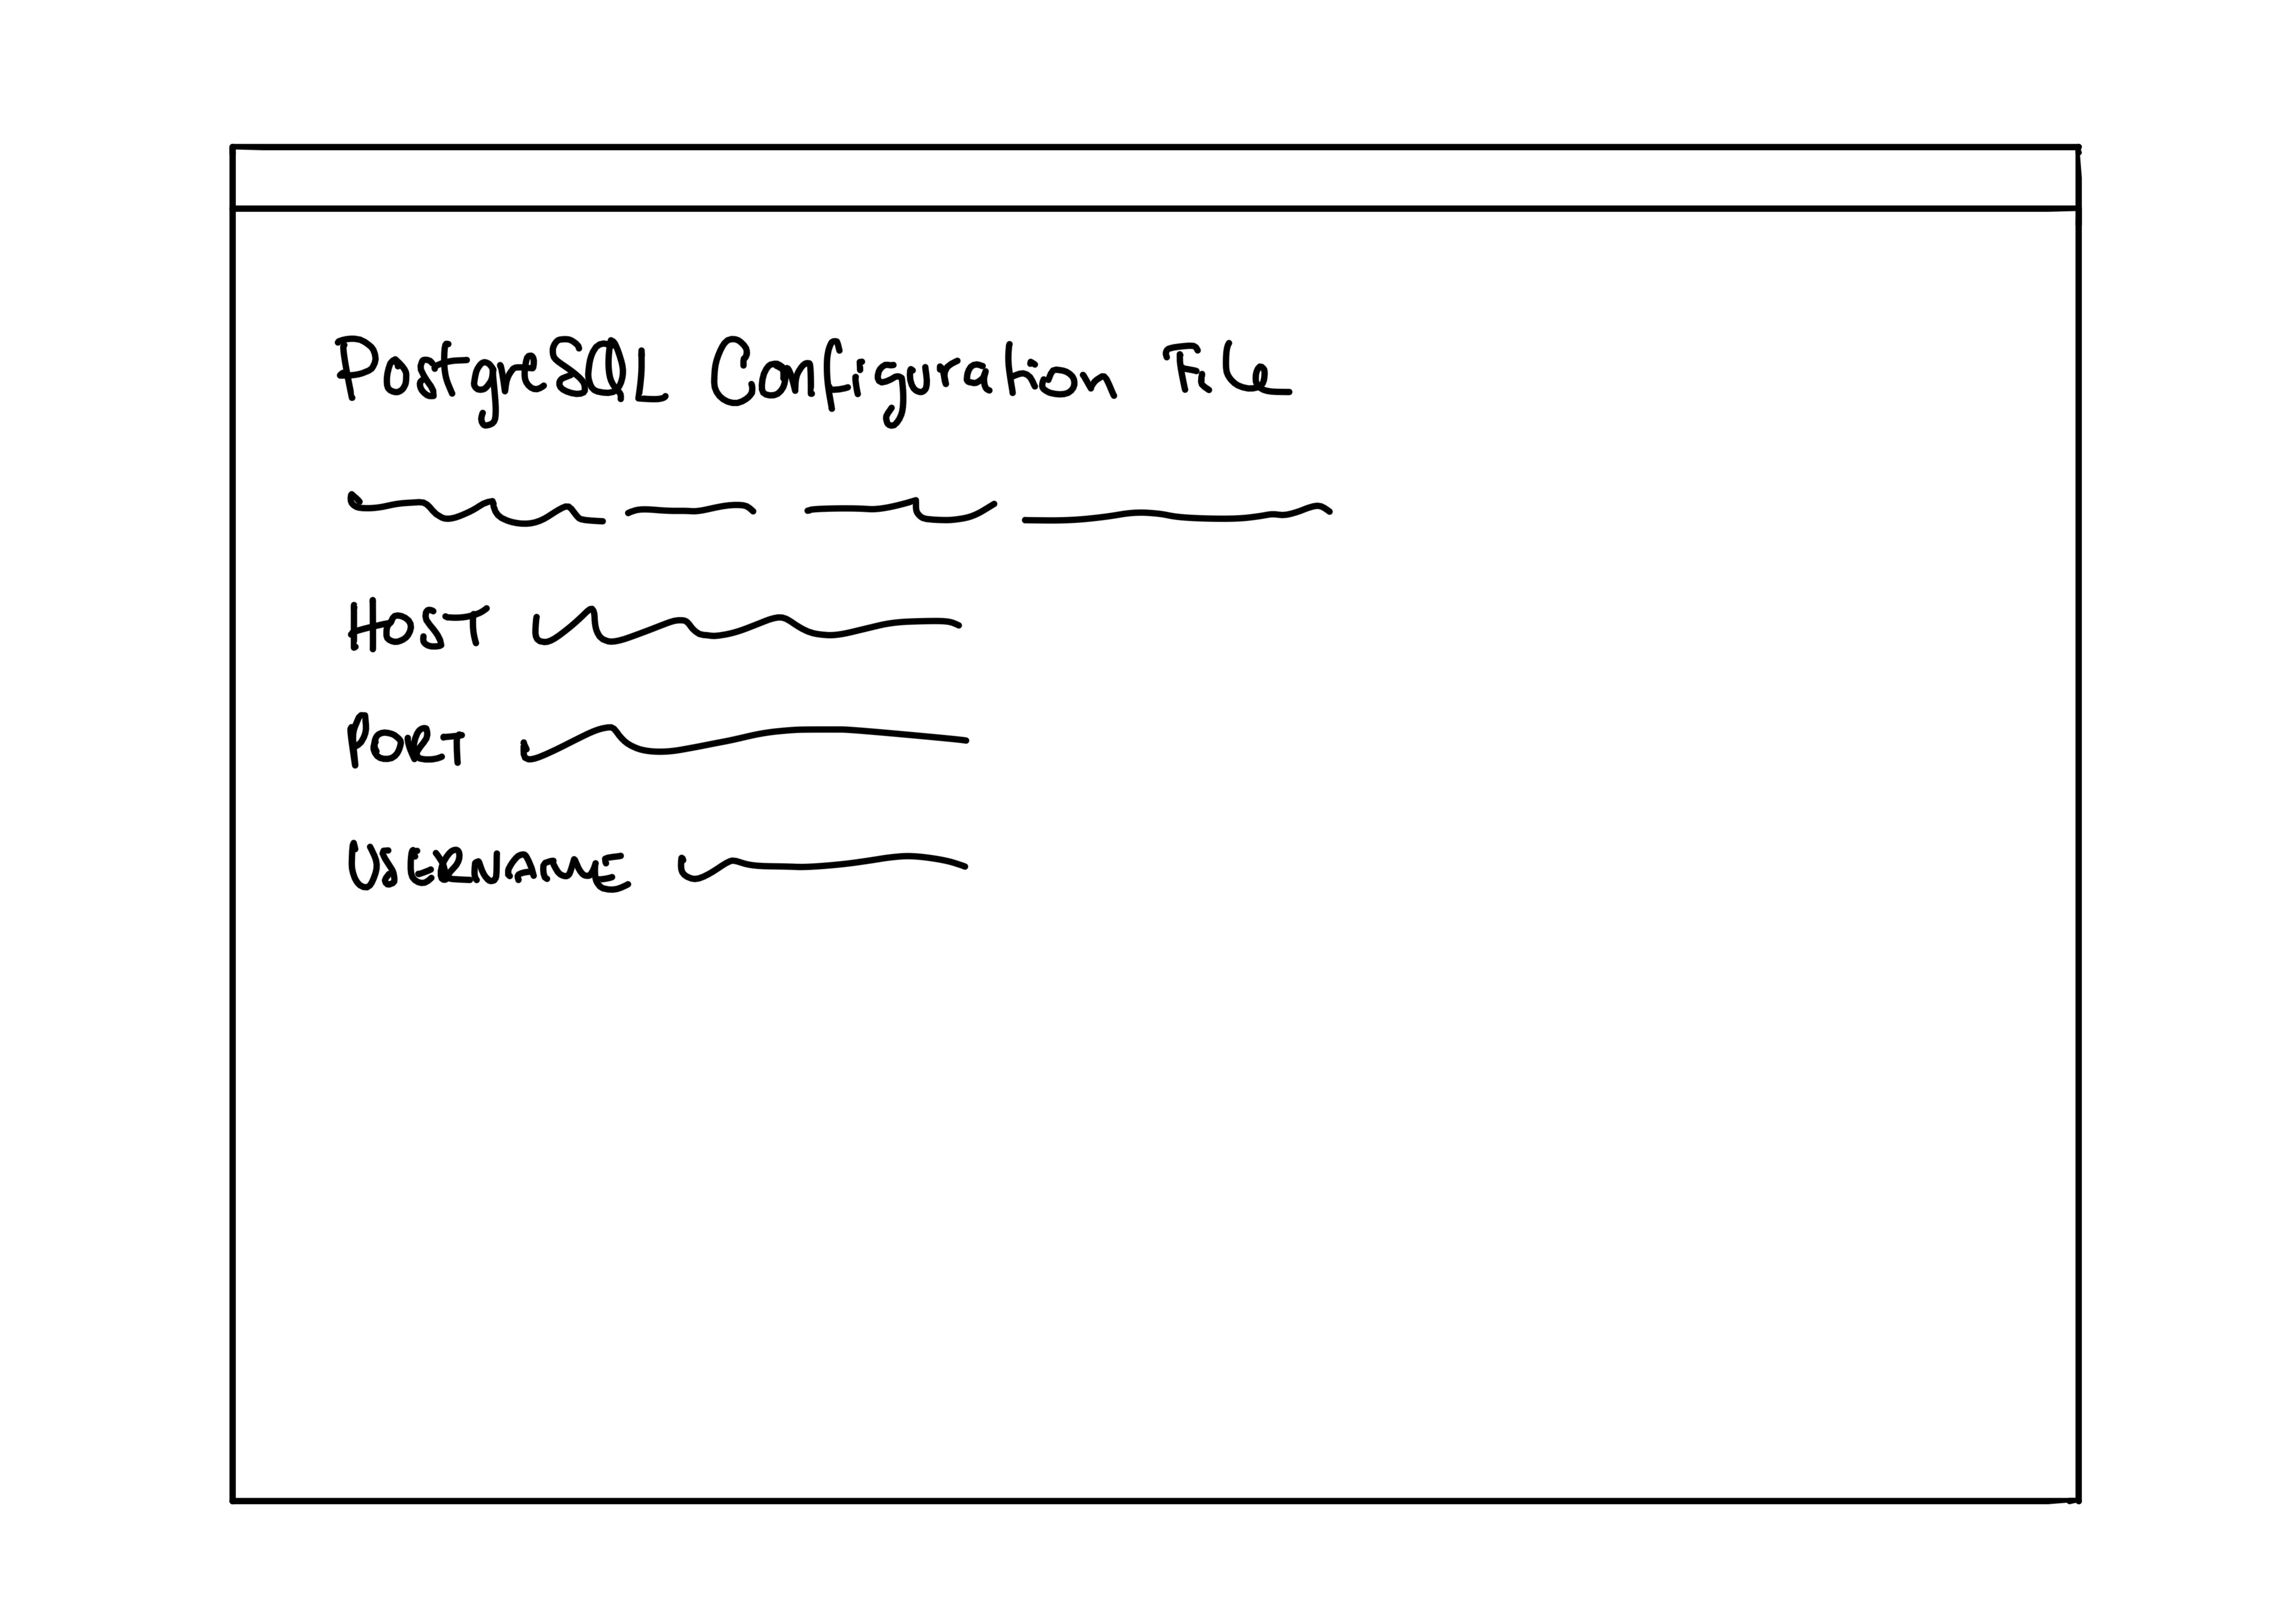 PostgreSQL Configuration File
HOST
PORT
USERNAME